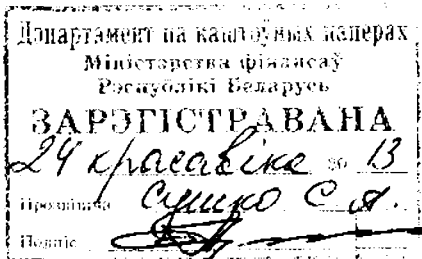 Дэпартамент па каштоўных паперах
Міністэрства фінансаў
Рэспублікі Беларусь
ЗАРЭГІСТРАВАНА
24 красавіка 20 13
Прозвішча Сушко С.А.
Подпіс